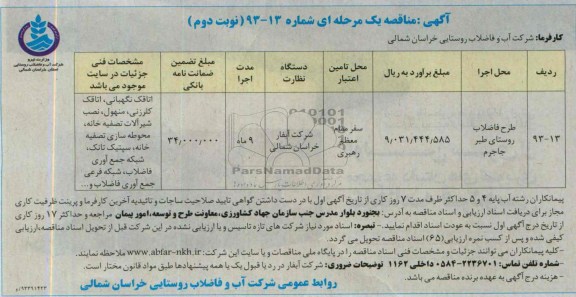 آگهی :مناقصه یک مرحله ای شماره ۱۳-۹۳ (نوبت دوم)
کارفرما: شرکت آب و فاضلاب روستایی خراسان شمالی
وزارت نیرو
شرکت آب و فاضلاب روستایی
استان خراسان شمالی
ردیف
محل اجرا
مبلغ برآورد به ریال
محل تامین اعتبار
دستگاه نظارت
مدت اجرا
مبلغ تضمین ضمانت نامه بانکی
مشخصات فنی جزئیات در سایت موجود می باشد
۹۳-۱۳
طرح فاضلاب روستای طبر جاجرم
۹/۰۳۱/۴۴۴/۵۸۵
سفر مقام معظم رهبری
شرکت آبفار خراسان شمالی
۹ ماه
۳۴/۰۰۰/۰۰۰
اتاقک نگهبانی، اتاقک کلرزنی، منهول، نصب شیرآلات تصفیه خانه، محوطه سازی تصفیه خانه، سپتیک تانک، شبکه جمع آوری فاضلاب، شبکه فرعی جمع آوری فاضلاب و...
ParsNamadData
پیمانکاران رشته آب پایه ۴ و ۵ حداکثر ظرف مدت ۷ روز کاری از تاریخ آگهی اول با در دست داشتن گواهی تایید صلاحیت ساجات و تائیدیه آخرین کارفرما و پرینت ظرفیت کاری
مجاز برای دریافت اسناد ارزیابی و اسناد مناقصه به آدرس: بجنورد بلوار مدرس جنب سازمان جهاد کشاورزی، معاونت طرح و توسعه، امور پیمان مراجعه و حداکثر ۱۷ روز کاری
از تاریخ درج آگهی اول نسبت به عودت اسناد اقدام نمایند. - تبصره: اسناد مورد نیاز شرکت های تازه تاسیس و یا ارزیابی نشده در این شرکت قبل از تحویل اسناد مناقصه، ارزیابی
کیفی شده و پس از کسب نمره ارزیابی (۶۵) اسناد مناقصه تحویل می گردد.
-کلیه پیمانکاران می توانند جزئیات و مشخصات فنی اسناد مناقصه را در پایگاه ملی مناقصات و یا سایت این شرکت: www.abfar-nkh.ir ملاحظه نمایند.
-شماره تلفن تماس: ۲۲۴۶۷۰۱-۰۵۸۴ داخلی ۱۱۶۲ توضیحات ضروری: شرکت آبفار در رد یا قبول یک یا همه پیشنهادها طبق مواد قانون مختار است.
- هزینه درج آگهی به عهده برنده مناقصه می باشد.
روابط عمومی شرکت آب و فاضلاب روستایی خراسان شمالی